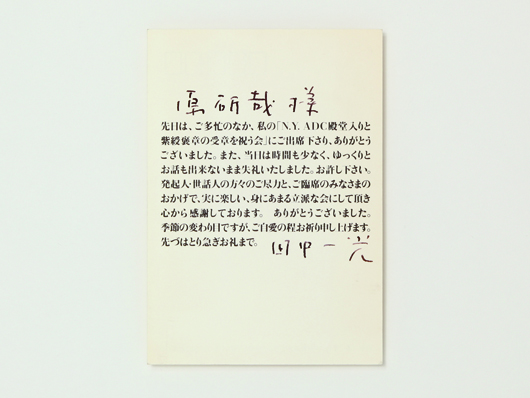 原研哉様
先日は、ご多忙のなか、私の「N.Y. ADC殿堂入りと
紫綬褒章の受章を祝う会」にご出席下さり、ありがとう
ございました。また、当日は時間も少なく、ゆっくりと
お話も出来ないまま失礼いたしました。お許し下さい。
発起人・世話人の方々のご尽力と、ご臨席のみなさまの
おかげで、実に楽しい、身にあまる立派な会にして頂き
心から感謝しております。 ありがとうございました。
季節の変わり目ですが、ご自愛の程お祈り申し上げます。
先づはとり急ぎお礼まで。 田中一光